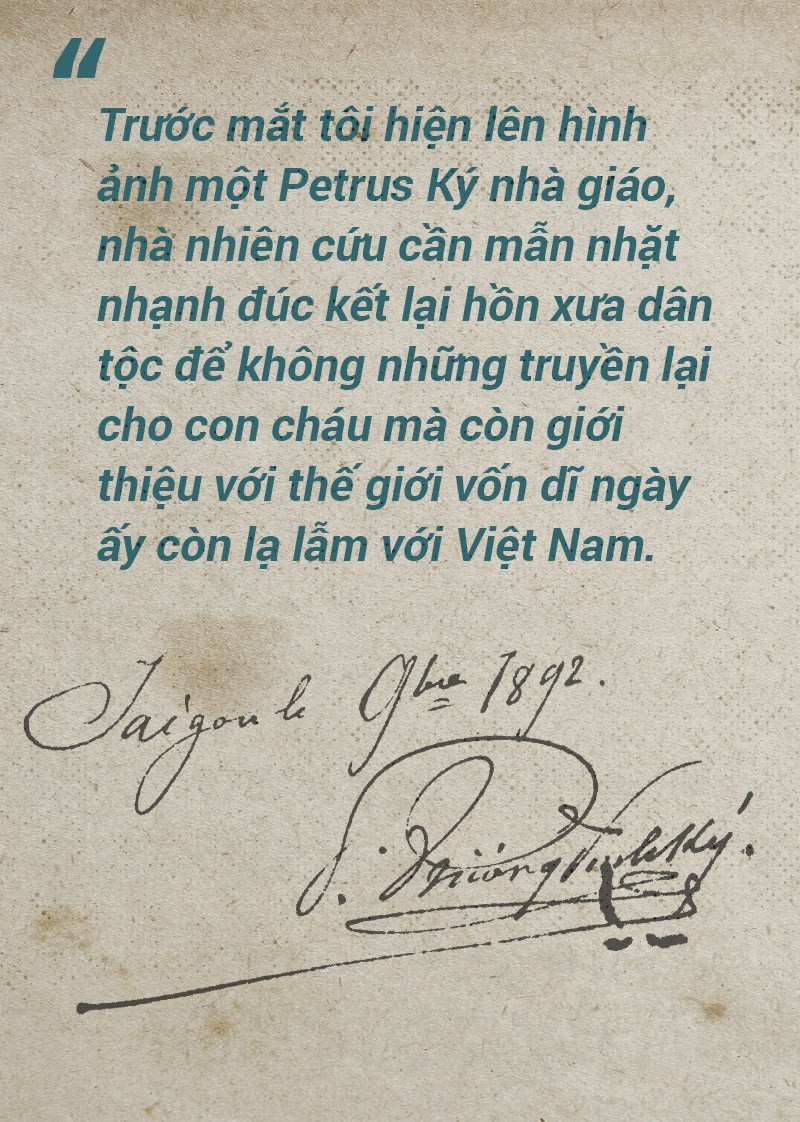 “
Trước mắt tôi hiện lên hình
ảnh một Petrus Ký nhà giáo,
nhà nhiên cứu cần mẫn nhặt
nhạnh đúc kết lại hồn xưa dân
tộc để không những truyền lại
cho con cháu mà còn giới
thiệu với thế giới vốn dĩ ngày
ấy còn lạ lẫm với Việt Nam.
Saigon le 9bre 1892.
P. Trương Vĩnh Ký.